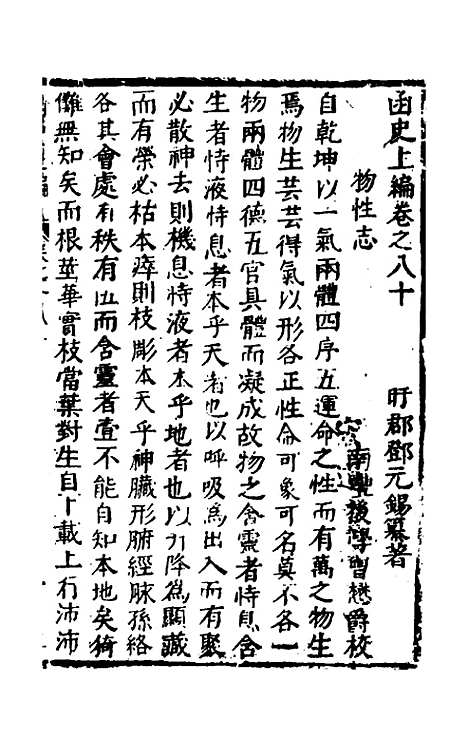 函史上編卷之八十
盱郡鄧元錫纂著
物性志
南豐後學曾懋爵校
自乾坤以一氣兩體四序五運命之性而有萬之物生
焉物生芸芸得氣以形各正性命可象可名莫不各一
物兩體四德五官具體而凝成故物之含靈者恃息含
生者恃液恃息者本乎天者也以呼吸為出入而有聚
必散神去則機息恃液者本乎地者也以升降為顯藏
而有榮必枯本瘁則枝彫本天乎神臟形腑經脉孫絡
各其會處有秩有伍而含靈者壹不能自知本地矣猗
儺無知矣而根荄華實枝當葉對生自下載上行沛沛